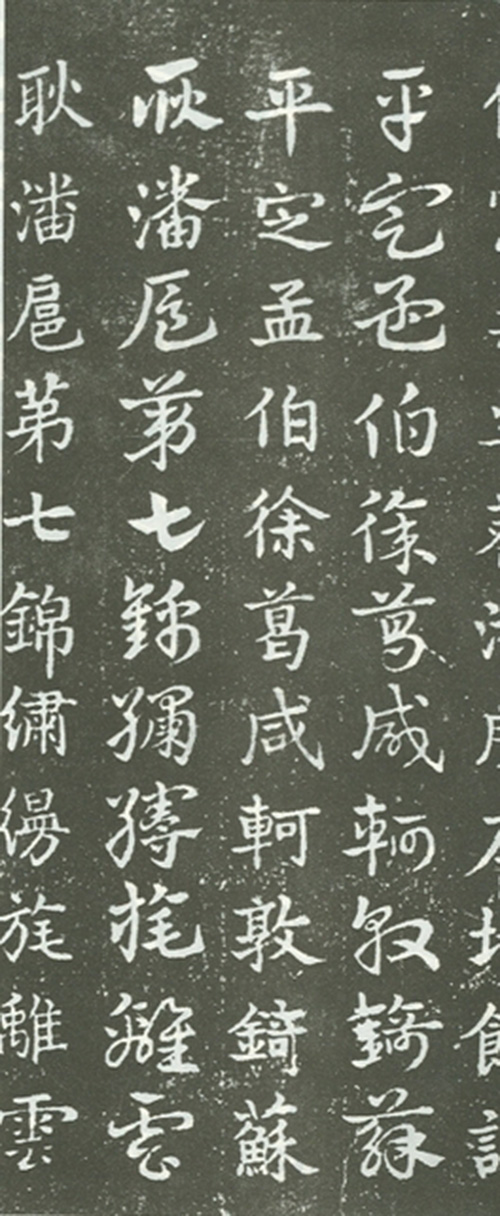 平定孟伯徐葛咸軻敦錡蘇
平定孟伯徐葛咸軻敦錡蘇
耿潘扈第七錦繡縵旄離雲
耿潘扈第七錦繡縵旄離雲